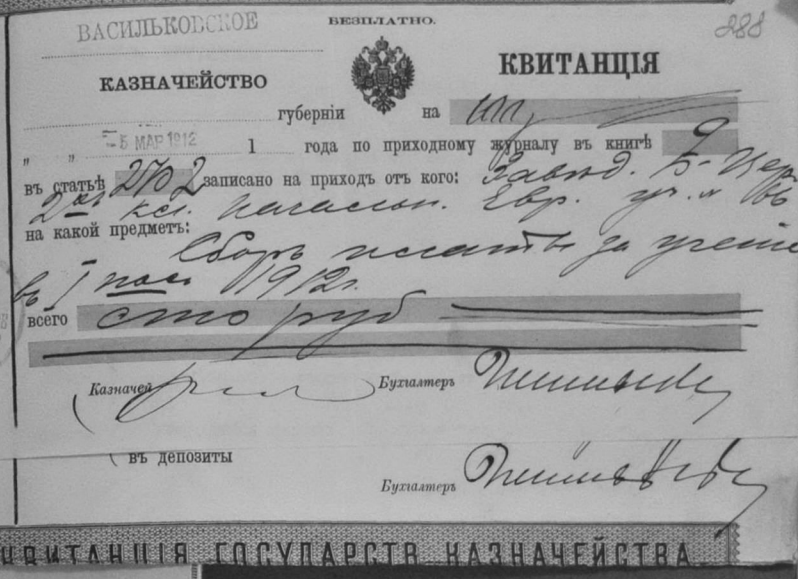 ВАСИЛЬКОВСКОЕ
БЕЗПЛАТНО.
288
КАЗНАЧЕЙСТВО
КВИТАНЦІЯ
губерніи на
5 МАР 1912
" " 1 года по приходному журналу въ книгѣ 9
въ статьѣ 2732 записано на приходъ отъ кого: Завѣд. Б-Цер
2аго кл. начальн. Евр. уч. въ
на какой предметъ:
Сборъ платы за учение
въ I пол. 1912 г.
всего сто руб
Казначей Бухгалтеръ
въ депозиты
Бухгалтеръ
КВИТАНЦІЯ ГОСУДАРСТВ. КАЗНАЧЕЙСТВА